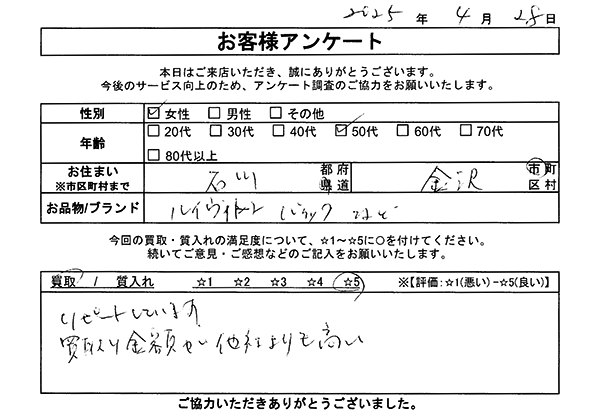 2025 年 4 月 28 日
お客様アンケート
本日はご来店いただき、誠にありがとうございます。
今後のサービス向上のため、アンケート調査のご協力をお願いいたします。
性別 ☑ 女性 ☐ 男性 ☐ その他
年齢 ☐ 20代 ☐ 30代 ☐ 40代 ☑ 50代 ☐ 60代 ☐ 70代
☐ 80代以上
お住まい 石川 都 府 県 道 金沢 市 町 区 村
※市区町村まで
お品物/ブランド ルイヴィトン バック など
今回の買取・質入れの満足度について、☆1～☆5に○を付けてください。
続いてご意見・ご感想などのご記入をお願いいたします。
買取 / 質入れ ☆1 ☆2 ☆3 ☆4 ☆5 ※【評価:☆1(悪い)−☆5(良い)】
リピートしています
買取り金額が他社よりも高い
ご協力いただきありがとうございました。